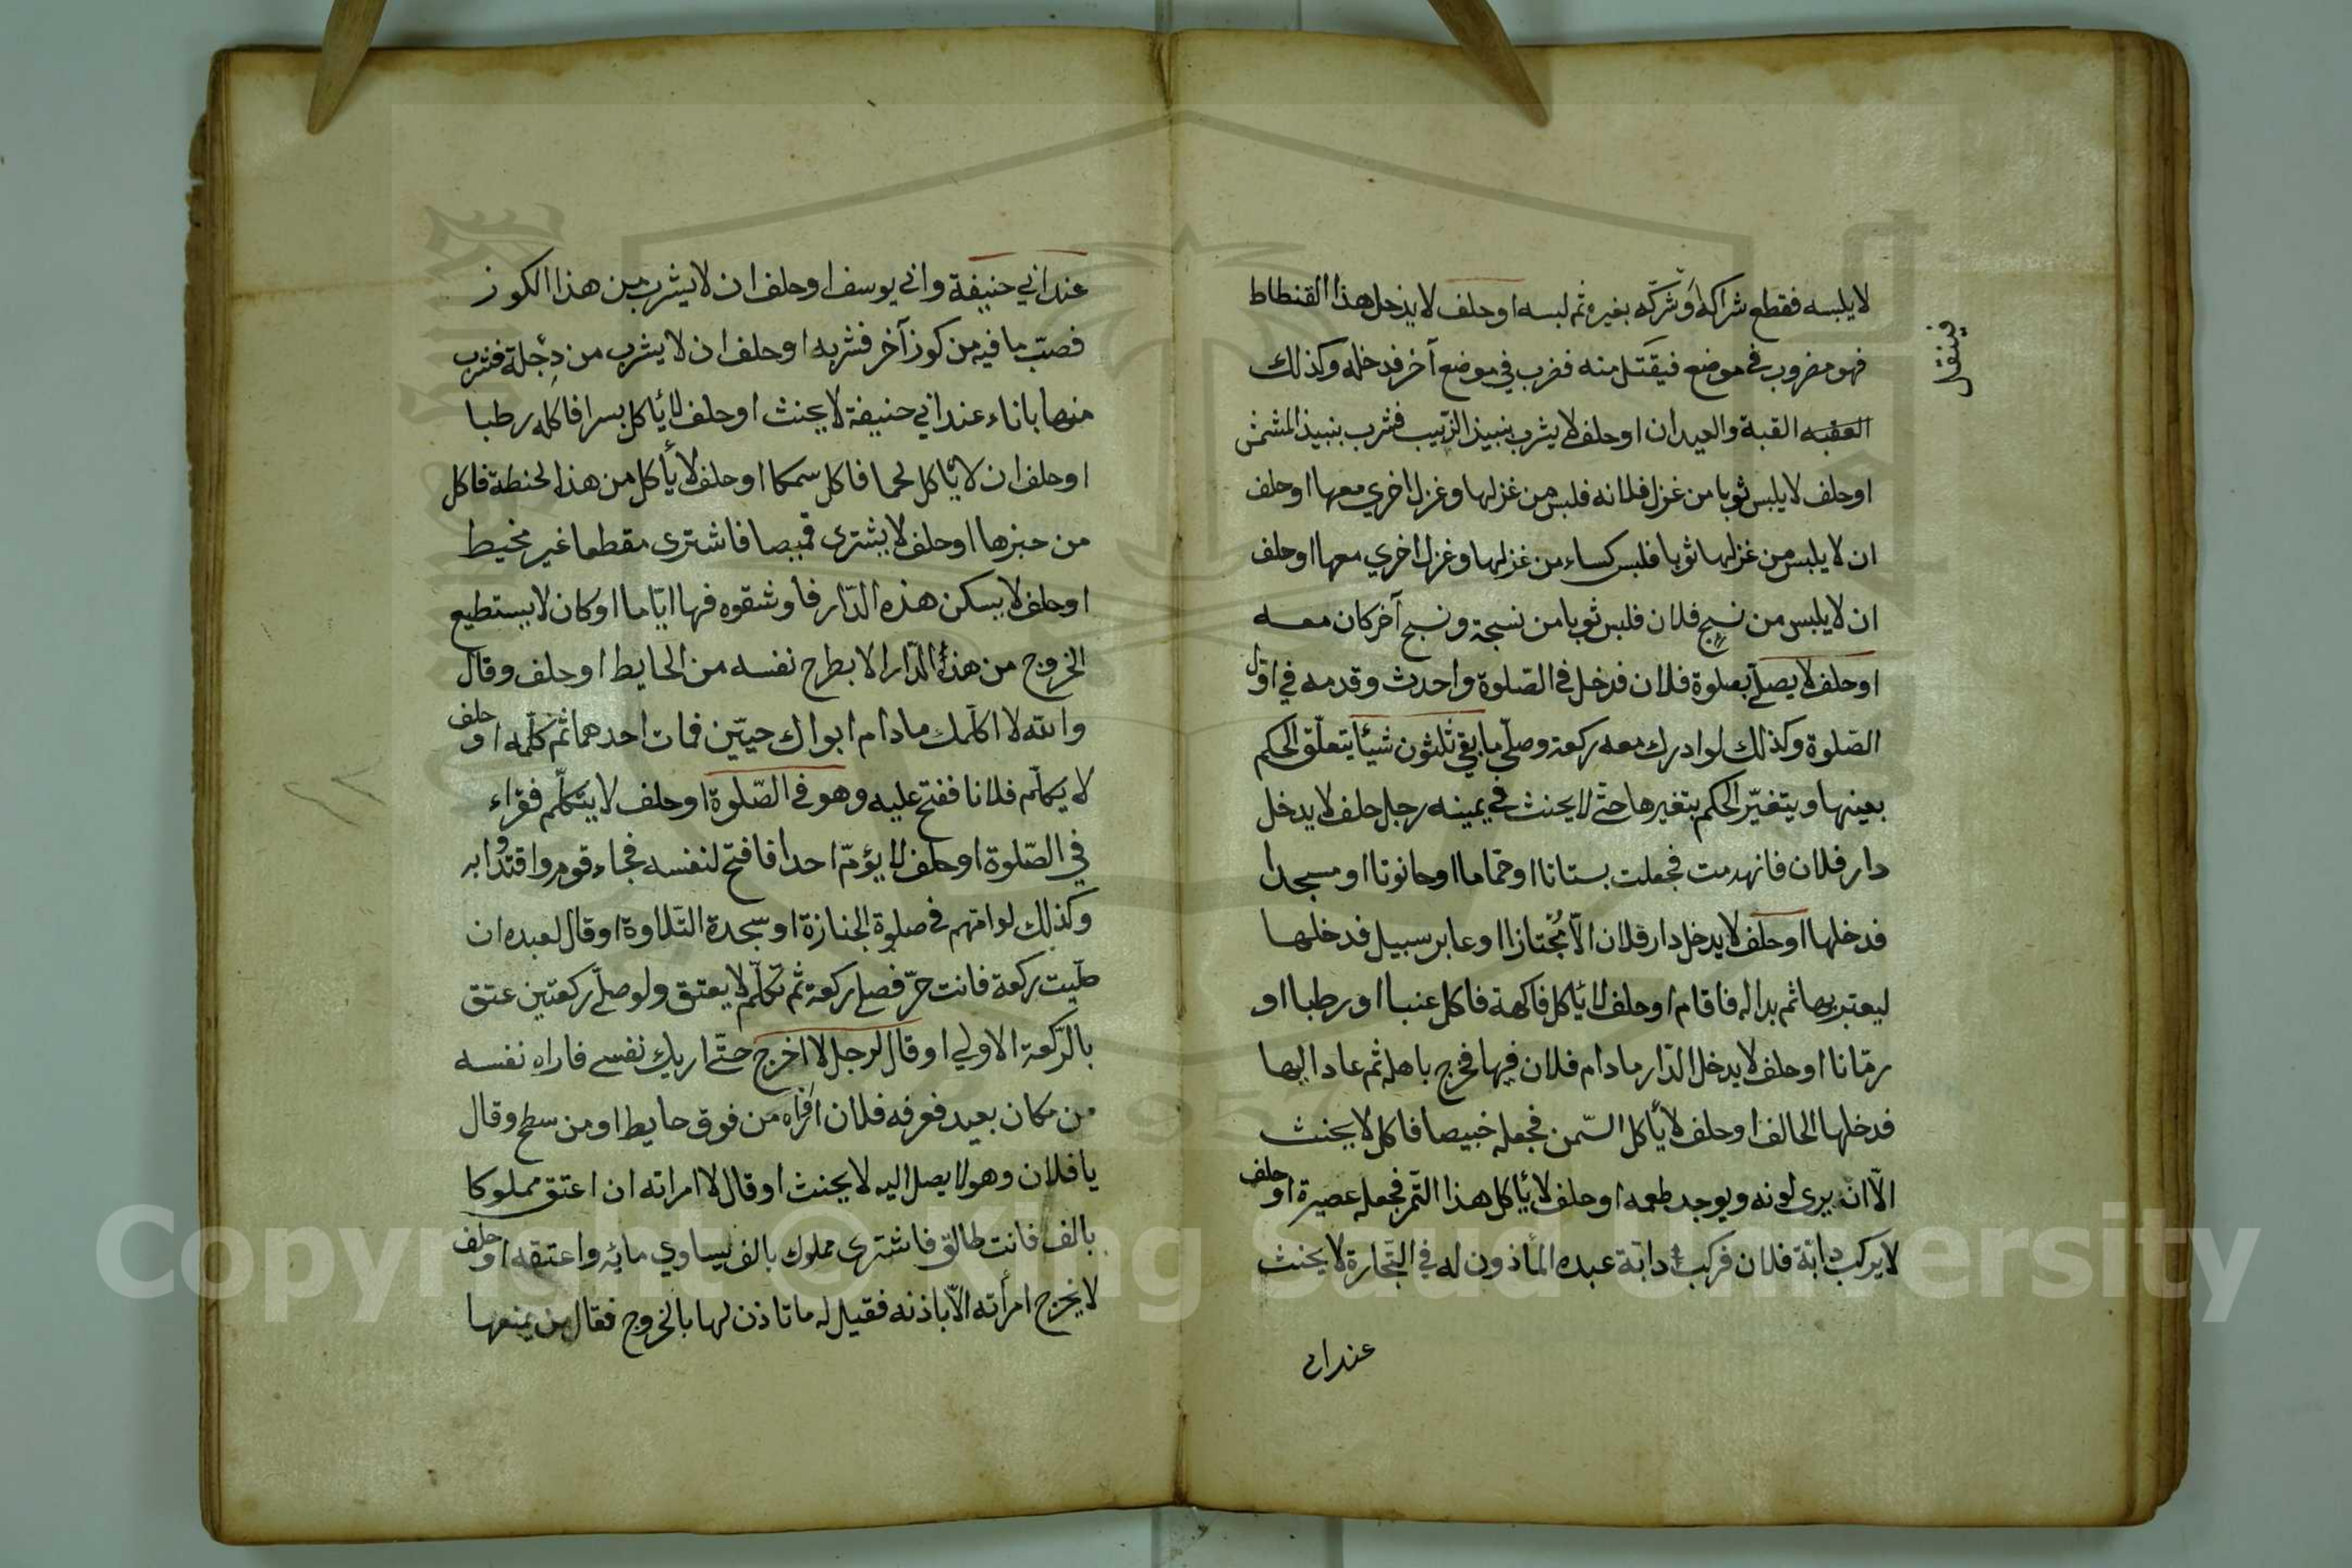 لا يلبسه فقطع شراكه وشركه بغيره ثم لبسه اوحلف لا يدخل هذا القنطاط
فهو مضروب في موضع فيقتل منه فضرب في موضع آخر فدخله وكذلك
ينقل
القبة والعيدان اوحلف لا يشرب بنبيذ الزبيب فشرب بنبيذ المشمش
اوحلف لا يلبس ثوبا من غزل فلانه فلبس من غزلها وغزل اخري معها اوحلف
ان لا يلبس من غزلها ثوبا فلبس كساء من غزلها وغزل اخري معها اوحلف
ان لا يلبس من نسج فلان فلبس ثوبا من نسجة ونسج آخر كان معه
اوحلف لا يصلّي بصلوة فلان فدخل في الصّلوة واحدث وقدمه في اوّل
الصّلوة وكذلك لو ادرك معه ركعة وصلّي ما بقي ثلثون شيئا يتعلّق الحكم
بعينها ويتغيّر الحكم بتغيرها حتّي لا يحنث في يمينه رجل حلف لا يدخل
دار فلان فانهدمت فجعلت بستانا اوحمّاما اوحانوتا او مسجدا
فدخلها اوحلف لا يدخل دار فلان الّا مُجْتازا اوعابر سبيل فدخلها
ليعتبر بها ثم بدا له فاقام اوحلف لا يأكل فاكهة فاكل عنبا او رطبا او
رمّانا اوحلف لا يدخل الدّار ما دام فلان فيها فخرج باهله ثم عاد اليها
فدخلها الحالف اوحلف لا يأكل السّمن فجعله خبيصا فاكل لا يحنث
الّا ان يري لونه ويوجد طعمه اوحلف لا يأكل هذا التّمر فجعله عصيرة اوحلف
لا يركب دابّة فلان فركب دابّة عبده المأذون له في التّجارة لا يحنث
عند ابي
عند ابي حنيفة وابي يوسف اوحلف ان لا يشرب من هذا الكوز
فصبّ ما فيه من كوز آخر فشربه اوحلف ان لا يشرب من دِجلة فشرب
منها باناء عند ابي حنيفة لا يحنث اوحلف لا يأكل بسرا فاكله رطبا
اوحلف ان لا يأكل لحما فاكل سمكا اوحلف لا يأكل من هذا الحنطة فاكل
من خبزها اوحلف لا يشتري قميصا فاشتري مقطعا غير مخيط
اوحلف لا يسكن هذه الدّار فاوشقوه فيها ايّاما اوكان لا يستطيع
الخروج من هذه الدّار الا بطرح نفسه من الحايط اوحلف وقال
والله لا اكلّمك ما دام ابواك حيّين فمات احدهما ثمّ كلّمه اوحلف
لا يكلّم فلانا ففتح عليه وهو في الصّلوة اوحلف لا يتكلّم فقراء
في الصّلوة اوحلف لا يؤمّ احدا فافتح لنفسه فجاء قوم واقتدوا به
وكذلك لو امّهم في صلوة الجنازة اوسجدة التّلاوة اوقال لعبده ان
صلّيت ركعة فانت حرّ فصلي ركعة ثم تكلّم لا يعتق ولو صلّي ركعتين عتق
بالرّكعة الاولي اوقال لرجل لا اخرج حتّي اريك نفسي فاراه نفسه
من مكان بعيد فعرفه فلان اوراه من فوق حايط اومن سطح وقال
يا فلان وهو لا يصل اليه لا يحنث اوقال لا امراته ان اعتق مملوكا
بالف فانت طالق فاشتري مملوك بالف يساوي مايه واعتقه اوحلف
لا يخرج امرأته الّا باذنه فقيل له ما تاذن لها بالخروج فقال من يمنعها
Copyright © King Saud University
1957